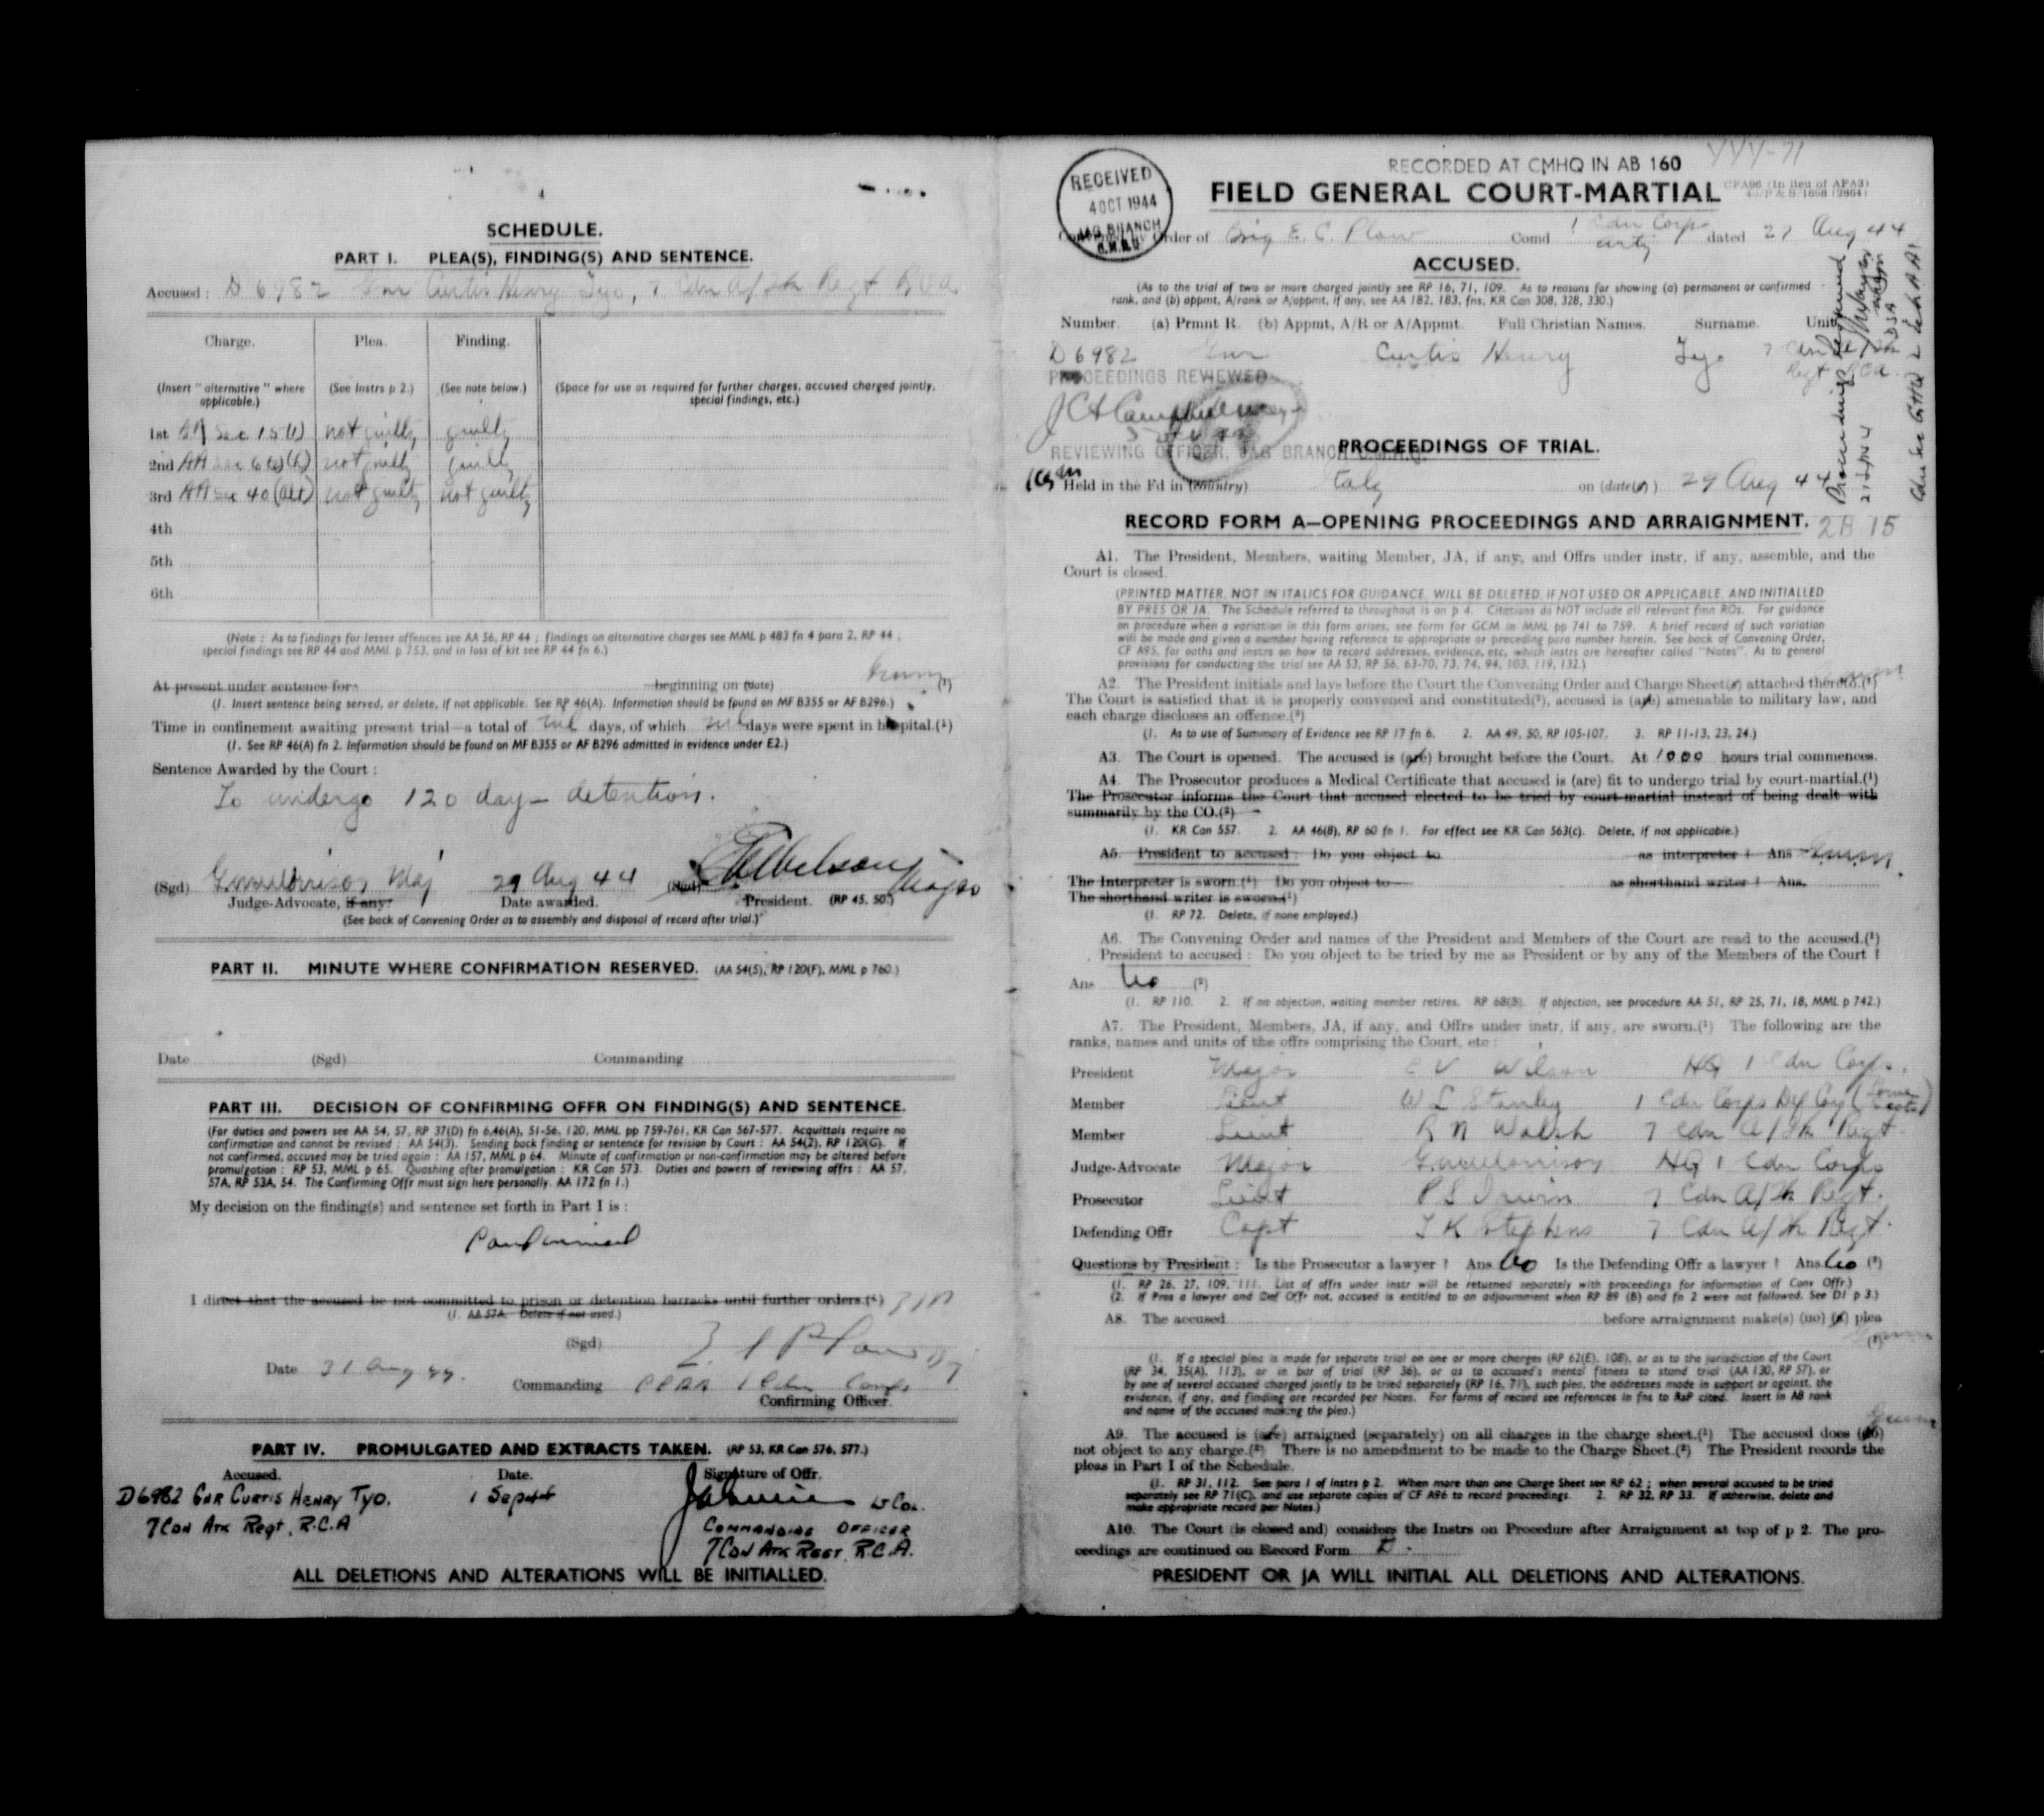 SCHEDULE.
PART I. PLEA(S), FINDING(S) AND SENTENCE.
Accused: D 6982 Gnr Curtis Henry Tyo, 7 Cdn A/Tk Regt RCA
Charge. Plea. Finding.
(Insert "alternative" where applicable.) (See Instrs p 2.) (See note below.) (Space for use as required for further charges, accused charged jointly, special findings, etc.)
1st AA Sec 15(1) not guilty guilty
2nd AA Sec 6 (k) not guilty guilty
3rd AA Sec 40 (alt) not guilty not guilty
4th
5th
6th
(Note : As to findings for lesser offences see AA 56, RP 44 ; findings on alternative charges see MML p 483 fn 4 para 2, RP 44 ;
special findings see RP 44 and MML p 753, and in loss of kit see RP 44 fn 6.)
At present under sentence for beginning on (date) (¹)
(1. Insert sentence being served, or delete, if not applicable. See RP 46(A). Information should be found on MF B355 or AF B296.)
Time in confinement awaiting present trial—a total of nil days, of which nil days were spent in hospital.(¹)
(1. See RP 46(A) fn 2. Information should be found on MF B355 or AF B296 admitted in evidence under E2.)
Sentence Awarded by the Court :
To undergo 120 days detention.
(Sgd) Morrison Maj 29 Aug 44 (Sgd) Wilson Major
Judge-Advocate, if any. Date awarded. President. (RP 45, 50.)
(See back of Convening Order as to assembly and disposal of record after trial.)
PART II. MINUTE WHERE CONFIRMATION RESERVED. (AA 54(5), RP 120(F), MML p 760.)
Date (Sgd) Commanding
PART III. DECISION OF CONFIRMING OFFR ON FINDING(S) AND SENTENCE.
(For duties and powers see AA 54, 57, RP 37(D) fn 6,46(A), 51-56, 120, MML pp 759-761, KR Can 567-577. Acquittals require no
confirmation and cannot be revised : AA 54(3). Sending back finding or sentence for revision by Court : AA 54(2), RP 120(G). If
not confirmed, accused may be tried again : AA 157, MML p 64. Minute of confirmation or non-confirmation may be altered before
promulgation : RP 53, MML p 65. Quashing after promulgation : KR Can 573. Duties and powers of reviewing offrs : AA 57,
57A, RP 53A, 54. The Confirming Offr must sign here personally. AA 172 fn 1.)
My decision on the finding(s) and sentence set forth in Part I is :
Confirmed
I direct that the accused be not committed to prison or detention barracks until further orders.(¹)
(1. AA 57A. Delete if not used.)
(Sgd) Plow
Date 31 Aug 44. Commanding CCRA 1 Cdn Corps
Confirming Officer.
PART IV. PROMULGATED AND EXTRACTS TAKEN. (RP 53, KR Can 576, 577.)
Accused. Date. Signature of Offr.
D6982 GNR CURTIS HENRY TYO. 1 Sept Lt Col.
7 CDN ATK REGT, R.C.A COMMANDING OFFICER
7 CDN ATK REGT. R.C.A.
ALL DELETIONS AND ALTERATIONS WILL BE INITIALLED.
RECEIVED
4 OCT 1944
JAG BRANCH
C.M.H.Q.
RECORDED AT CMHQ IN AB 160
YYY-71
FIELD GENERAL COURT-MARTIAL
CFA96 (In lieu of AFA3)
Convened by Order of Brig E. C. Plow Comd 1 Cdn Corps arty dated 27 Aug 44
ACCUSED.
(As to the trial of two or more charged jointly see RP 16, 71, 109. As to reasons for showing (a) permanent or confirmed
rank, and (b) appmt, A/rank or A/appmt, if any, see AA 182, 183, fns, KR Can 308, 328, 330.)
Number. (a) Prmnt R. (b) Appmt, A/R or A/Appmt. Full Christian Names. Surname. Unit.
D 6982 Gnr Curtis Henry Tyo 7 Cdn A/Tk Regt RCA.
PROCEEDINGS REVIEWED
REVIEWING OFFICER, JAG BRANCH C.M.H.Q.
Proceedings reviewed
PROCEEDINGS OF TRIAL.
Held in the Fd in (country) Italy on (date(s)) 29 Aug 44
RECORD FORM A—OPENING PROCEEDINGS AND ARRAIGNMENT.
2B 15
A1. The President, Members, waiting Member, JA, if any, and Offrs under instr, if any, assemble, and the
Court is closed.
(PRINTED MATTER, NOT IN ITALICS FOR GUIDANCE, WILL BE DELETED, IF NOT USED OR APPLICABLE, AND INITIALLED
BY PRES OR JA. The Schedule referred to throughout is on p 4. Citations do NOT include all relevant finn ROs. For guidance
on procedure when a variation in this form arises, see form for GCM in MML pp 741 to 759. A brief record of such variation
will be made and given a number having reference to appropriate or preceding para number herein. See back of Convening Order,
CF A95, for oaths and instrs on how to record addresses, evidence, etc, which instrs are hereafter called "Notes". As to general
provisions for conducting the trial see AA 53, RP 56, 63-70, 73, 74, 94, 103, 119, 132.)
A2. The President initials and lays before the Court the Convening Order and Charge Sheet(s) attached thereto.(¹)
The Court is satisfied that it is properly convened and constituted(²), accused is (are) amenable to military law, and
each charge discloses an offence.(³)
(1. As to use of Summary of Evidence see RP 17 fn 6. 2. AA 49, 50, RP 105-107. 3. RP 11-13, 23, 24.)
A3. The Court is opened. The accused is (are) brought before the Court. At 1000 hours trial commences.
A4. The Prosecutor produces a Medical Certificate that accused is (are) fit to undergo trial by court-martial.(¹)
The Prosecutor informs the Court that accused elected to be tried by court-martial instead of being dealt with
summarily by the CO.(²)
(1. KR Can 557. 2. AA 46(8), RP 60 fn 1. For effect see KR Can 563(c). Delete, if not applicable.)
A5. President to accused : Do you object to as interpreter ? Ans
The Interpreter is sworn.(¹) Do you object to as shorthand writer ? Ans.
The shorthand writer is sworn.(¹)
(1. RP 72. Delete, if none employed.)
A6. The Convening Order and names of the President and Members of the Court are read to the accused.(¹)
President to accused : Do you object to be tried by me as President or by any of the Members of the Court ?
Ans No (²)
(1. RP 110. 2. If no objection, waiting member retires. RP 68(B). If objection, see procedure AA 51, RP 25, 71, 18, MML p 742.)
A7. The President, Members, JA, if any, and Offrs under instr, if any, are sworn.(¹) The following are the
ranks, names and units of the offrs comprising the Court, etc :
President Major C V Wilson HQ 1 Cdn Corps.
Member Lieut W L Stanley 1 Cdn Corps Def Coy
Member Lieut R N Walsh 7 Cdn A/Tk Regt.
Judge-Advocate Major Morrison HQ 1 Cdn Corps
Prosecutor Lieut P S Irwin 7 Cdn A/Tk Regt.
Defending Offr Capt T K Stephens 7 Cdn A/Tk Regt.
Questions by President : Is the Prosecutor a lawyer ? Ans. No Is the Defending Offr a lawyer ? Ans. No (²)
(1. RP 26, 27, 109, 111. List of offrs under instr will be returned separately with proceedings for information of Conv Offr.)
(2. If Pros a lawyer and Def Offr not, accused is entitled to an adjournment when RP 89 (B) and fn 2 were not followed. See D1 p 3.)
A8. The accused before arraignment make(s) (no) (a) plea
(¹)
(1. If a special plea is made for separate trial on one or more charges (RP 62(E), 108), or as to the jurisdiction of the Court
(RP 34, 35(A), 113), or in bar of trial (RP 36), or as to accused's mental fitness to stand trial (AA 130, RP 57), or
by one of several accused charged jointly to be tried separately (RP 16, 71), such plea, the addresses made in support or against, the
evidence, if any, and finding are recorded per Notes. For forms of record see references in fns to RsP cited. Insert in A8 rank
and name of the accused making the plea.)
A9. The accused is (are) arraigned (separately) on all charges in the charge sheet.(¹) The accused does (do)
not object to any charge.(²) There is no amendment to be made to the Charge Sheet.(²) The President records the
pleas in Part I of the Schedule.
(1. RP 31, 112. See para 1 of Instrs p 2. When more than one Charge Sheet see RP 62 ; when several accused to be tried
separately see RP 71(C), and use separate copies of CF A96 to record proceedings. 2. RP 32, RP 33. If otherwise, delete and
make appropriate record per Notes.)
A10. The Court (is closed and) considers the Instrs on Procedure after Arraignment at top of p 2. The pro-
ceedings are continued on Record Form
PRESIDENT OR JA WILL INITIAL ALL DELETIONS AND ALTERATIONS.